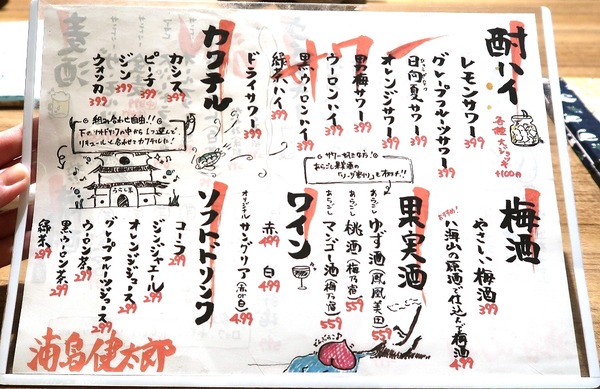 酎ハイ
各種大ジョッキ
+100円
レモンサワー 399
グレープフルーツサワー 399
日向夏サワー 399
オレンジサワー 399
男梅サワー 399
ウーロンハイ 399
黒ウーロンハイ 399
緑茶ハイ 399
ドライサワー 399
サワー
カクテル
カシス 399
ピーチ 399
ジン 399
ウォッカ 399
組み合わせ自由!!
梅酒
やさしい梅酒 399
おすすめ!
八海山の原酒で仕込んだ梅酒 499
果実酒
あらごし ゆず酒(鳳凰美田) 559
あらごし 桃酒(梅乃宿) 559
あらごし マンゴー酒(梅乃宿) 559
どんぶらこ
ワイン
赤 白 499
オリジナル サングリア(赤or白) 499
ソフトドリンク
コーラ 299
ジンジャエール 299
オレンジジュース 299
グレープフルーツジュース 299
ウーロン茶 299
黒ウーロン茶 299
緑茶 299
うらしま
浦島健太郎